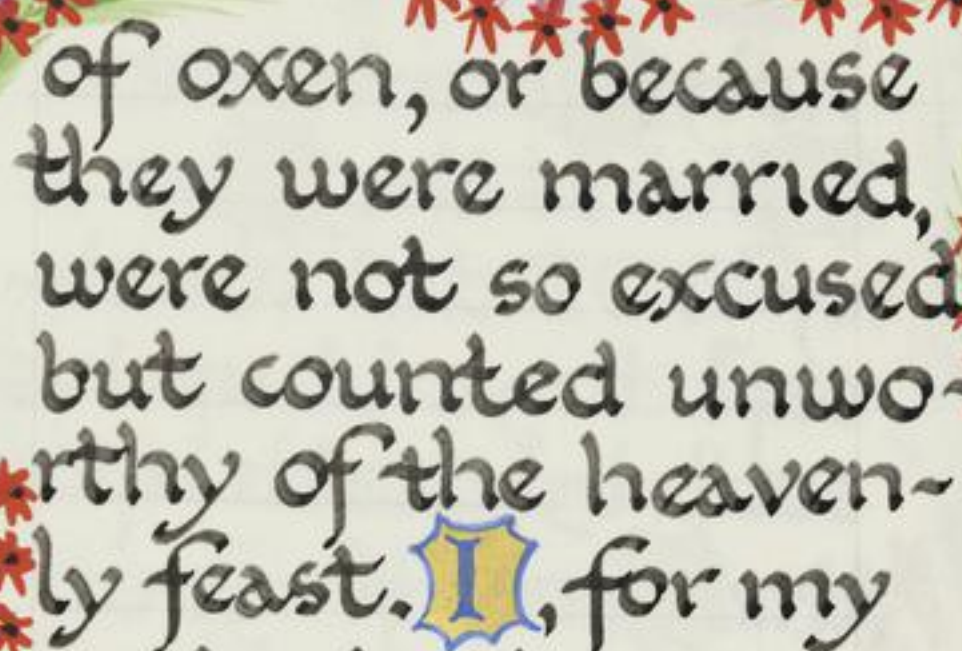 of oxen, or because
they were married,
were not so excused
but counted unwo-
rthy of the heaven-
ly feast. I, for my